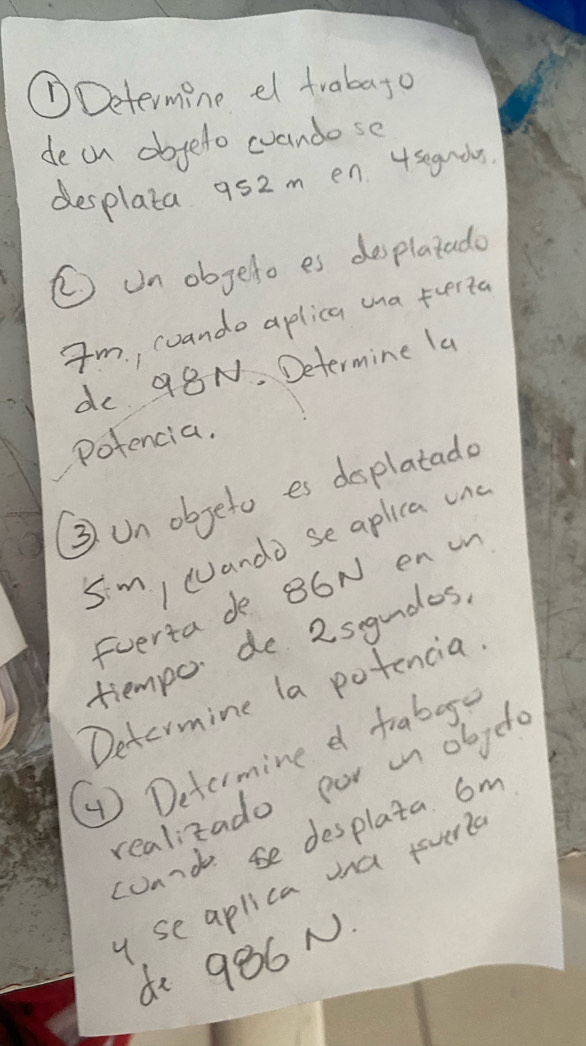 ① Determine el trabajo
de un objeto cuando se
desplaza 952 m en 4 segundos.
② Un objeto es desplazado
7m., cuando aplica una fuerza
de 98N. Determine la
potencia.
③ Un objeto es desplazado
5m, cuando se aplica una
fuerza de 86N en un
tiempo de 2 segundos.
Determine la potencia.
④ Determine el trabajo
realizado por un objeto
cuando se desplaza 6m
y se aplica una fuerza
de 986 N.